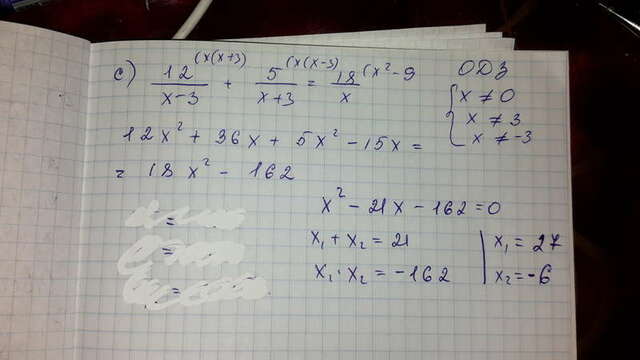 c) 12 (x(x+3) / x-3 + 5 (x(x-3) / x+3 = 18 (x² - 9 / x
ОДЗ
{ x ≠ 0
x ≠ 3
x ≠ -3
12x² + 36x + 5x² - 15x =
= 18x² - 162
x² - 21x - 162 = 0
x₁ + x₂ = 21 | x₁ = 27
x₁ · x₂ = -162 | x₂ = -6
=
=
=